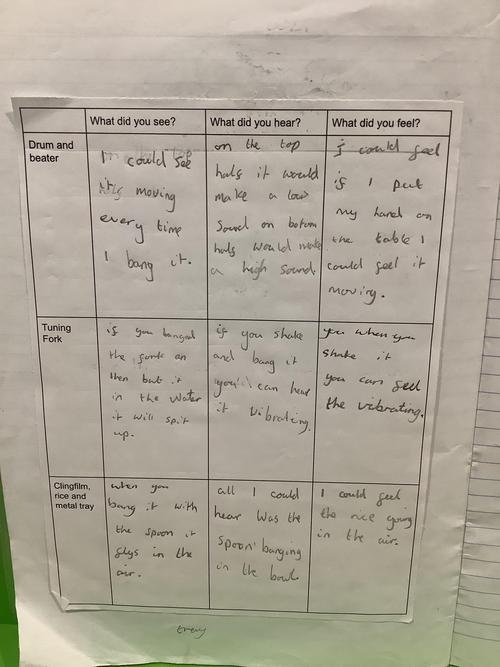 What did you see?
What did you hear?
What did you feel?
Drum and
beater
I could see
its moving
every time
I bang it.
on the top
half it would
make a low
Sound on bottom
half would make
a high sound.
I could feel
if I put
my hand on
the table I
could feel it
moving.
Tuning
Fork
if you banged
the
then but it
in the water
it will spit
up.
if you shake
and bang it
you can hear
it vibrating.
you when you
shake it
you can feel
the vibrating.
Clingfilm,
rice and
metal tray
when you
bang it with
the spoon it
flys in the
air.
all I could
hear was the
spoon banging
in the bowl.
I could feel
the rice going
in the air.
tray